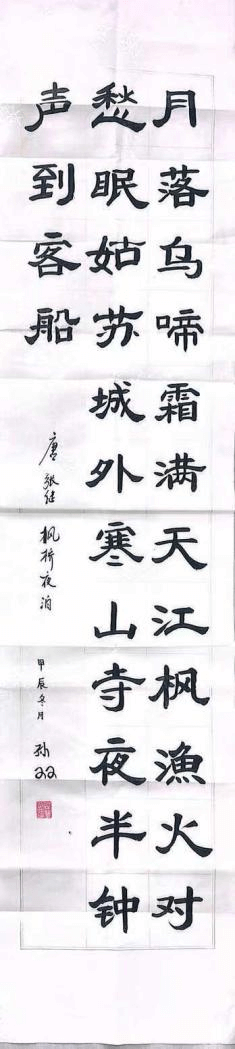 月落乌啼霜满天江枫渔火对
愁眠姑苏城外寒山寺夜半钟
声到客船
唐 张继 枫桥夜泊
甲辰冬月 孙双